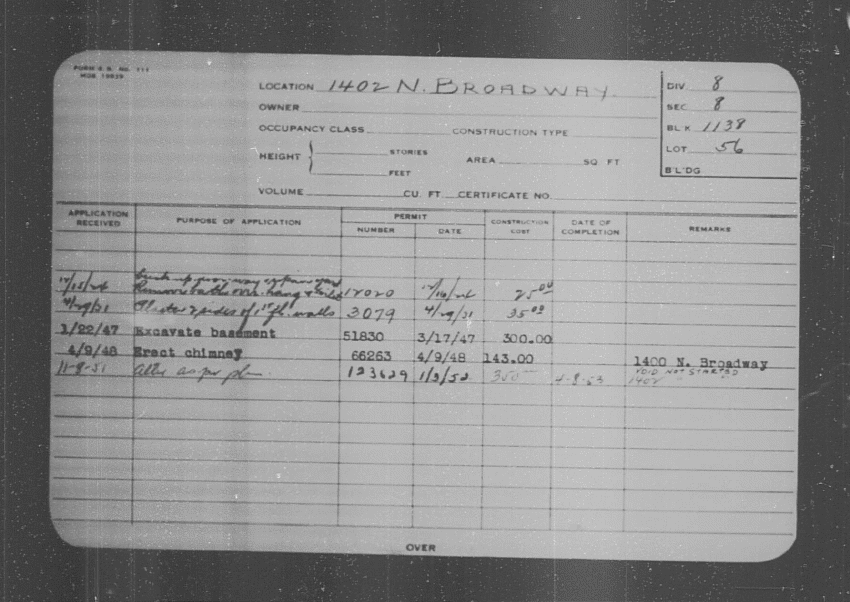 FORM S.B. NO. 111
LOCATION 1402 N. BROADWAY
DIV. 8
OWNER
SEC 8
OCCUPANCY CLASS CONSTRUCTION TYPE
BLK 1138
HEIGHT STORIES AREA SQ FT
LOT 56
FEET
B'L'DG
VOLUME CU. FT. CERTIFICATE NO.
APPLICATION RECEIVED PURPOSE OF APPLICATION PERMIT NUMBER DATE CONSTRUCTION COST DATE OF COMPLETION REMARKS
25.00
4/29/31 Plaster 2 sides of 1st fl. walls 3079 4/29/31 35.00
1/22/47 Excavate basement 51830 3/17/47 300.00
4/9/48 Erect chimney 66263 4/9/48 143.00 1400 N. Broadway
11-8-51 alter as per plan 123629 1/3/52 350 4-8-53 VOID NOT STARTED
1402
OVER